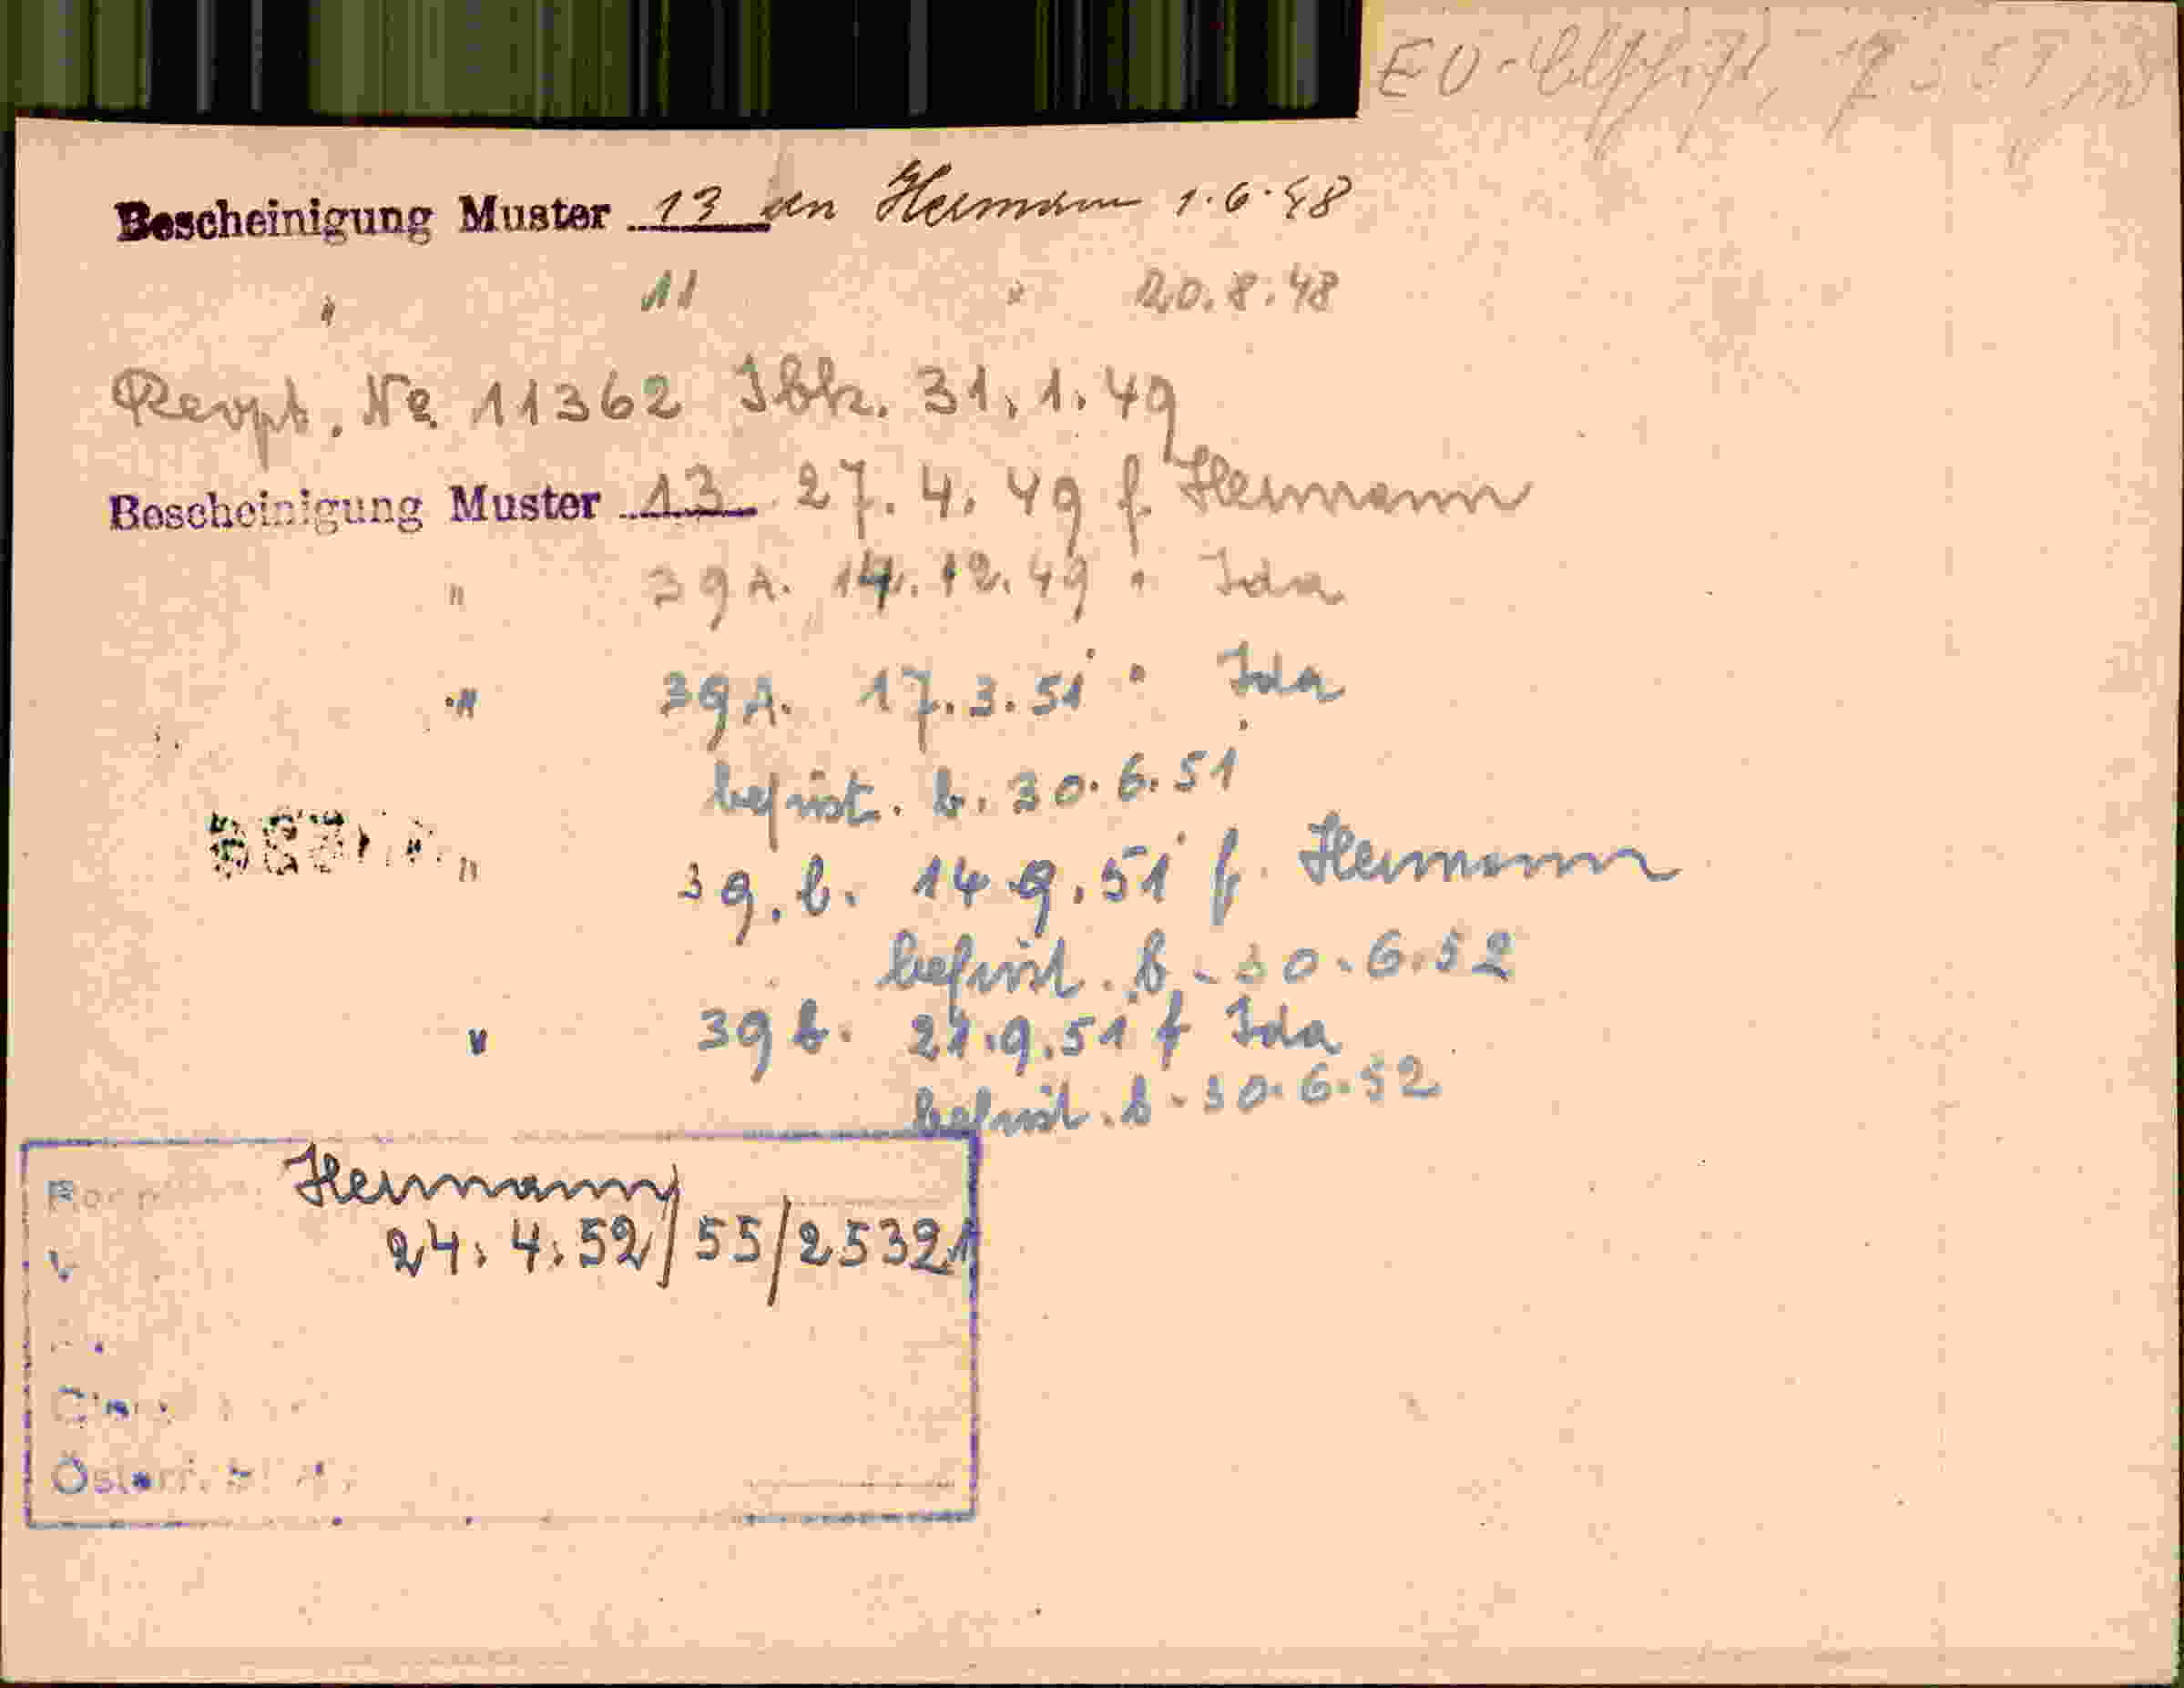 EU-
Bescheinigung Muster 13 an Hermann 1.6.48
" 11 " 20.8.48
Reisept. No 11362 Ibk. 31.1.49
Bescheinigung Muster 13 27.4.49 f. Hermann
" 39A. 14.12.49 " Ida
" 39A. 17.3.51 " Ida
befrist. b. 30.6.51
" 39.b. 14.9.51 f. Hermann
befrist. b. 30.6.52
" 39b. 21.9.51 f Ida
befrist. b. 30.6.52
Hermann
24.4.52/55/25321